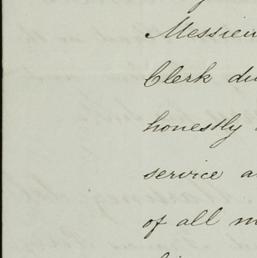 Messieu
Clerk du
honestly
service a
of all m